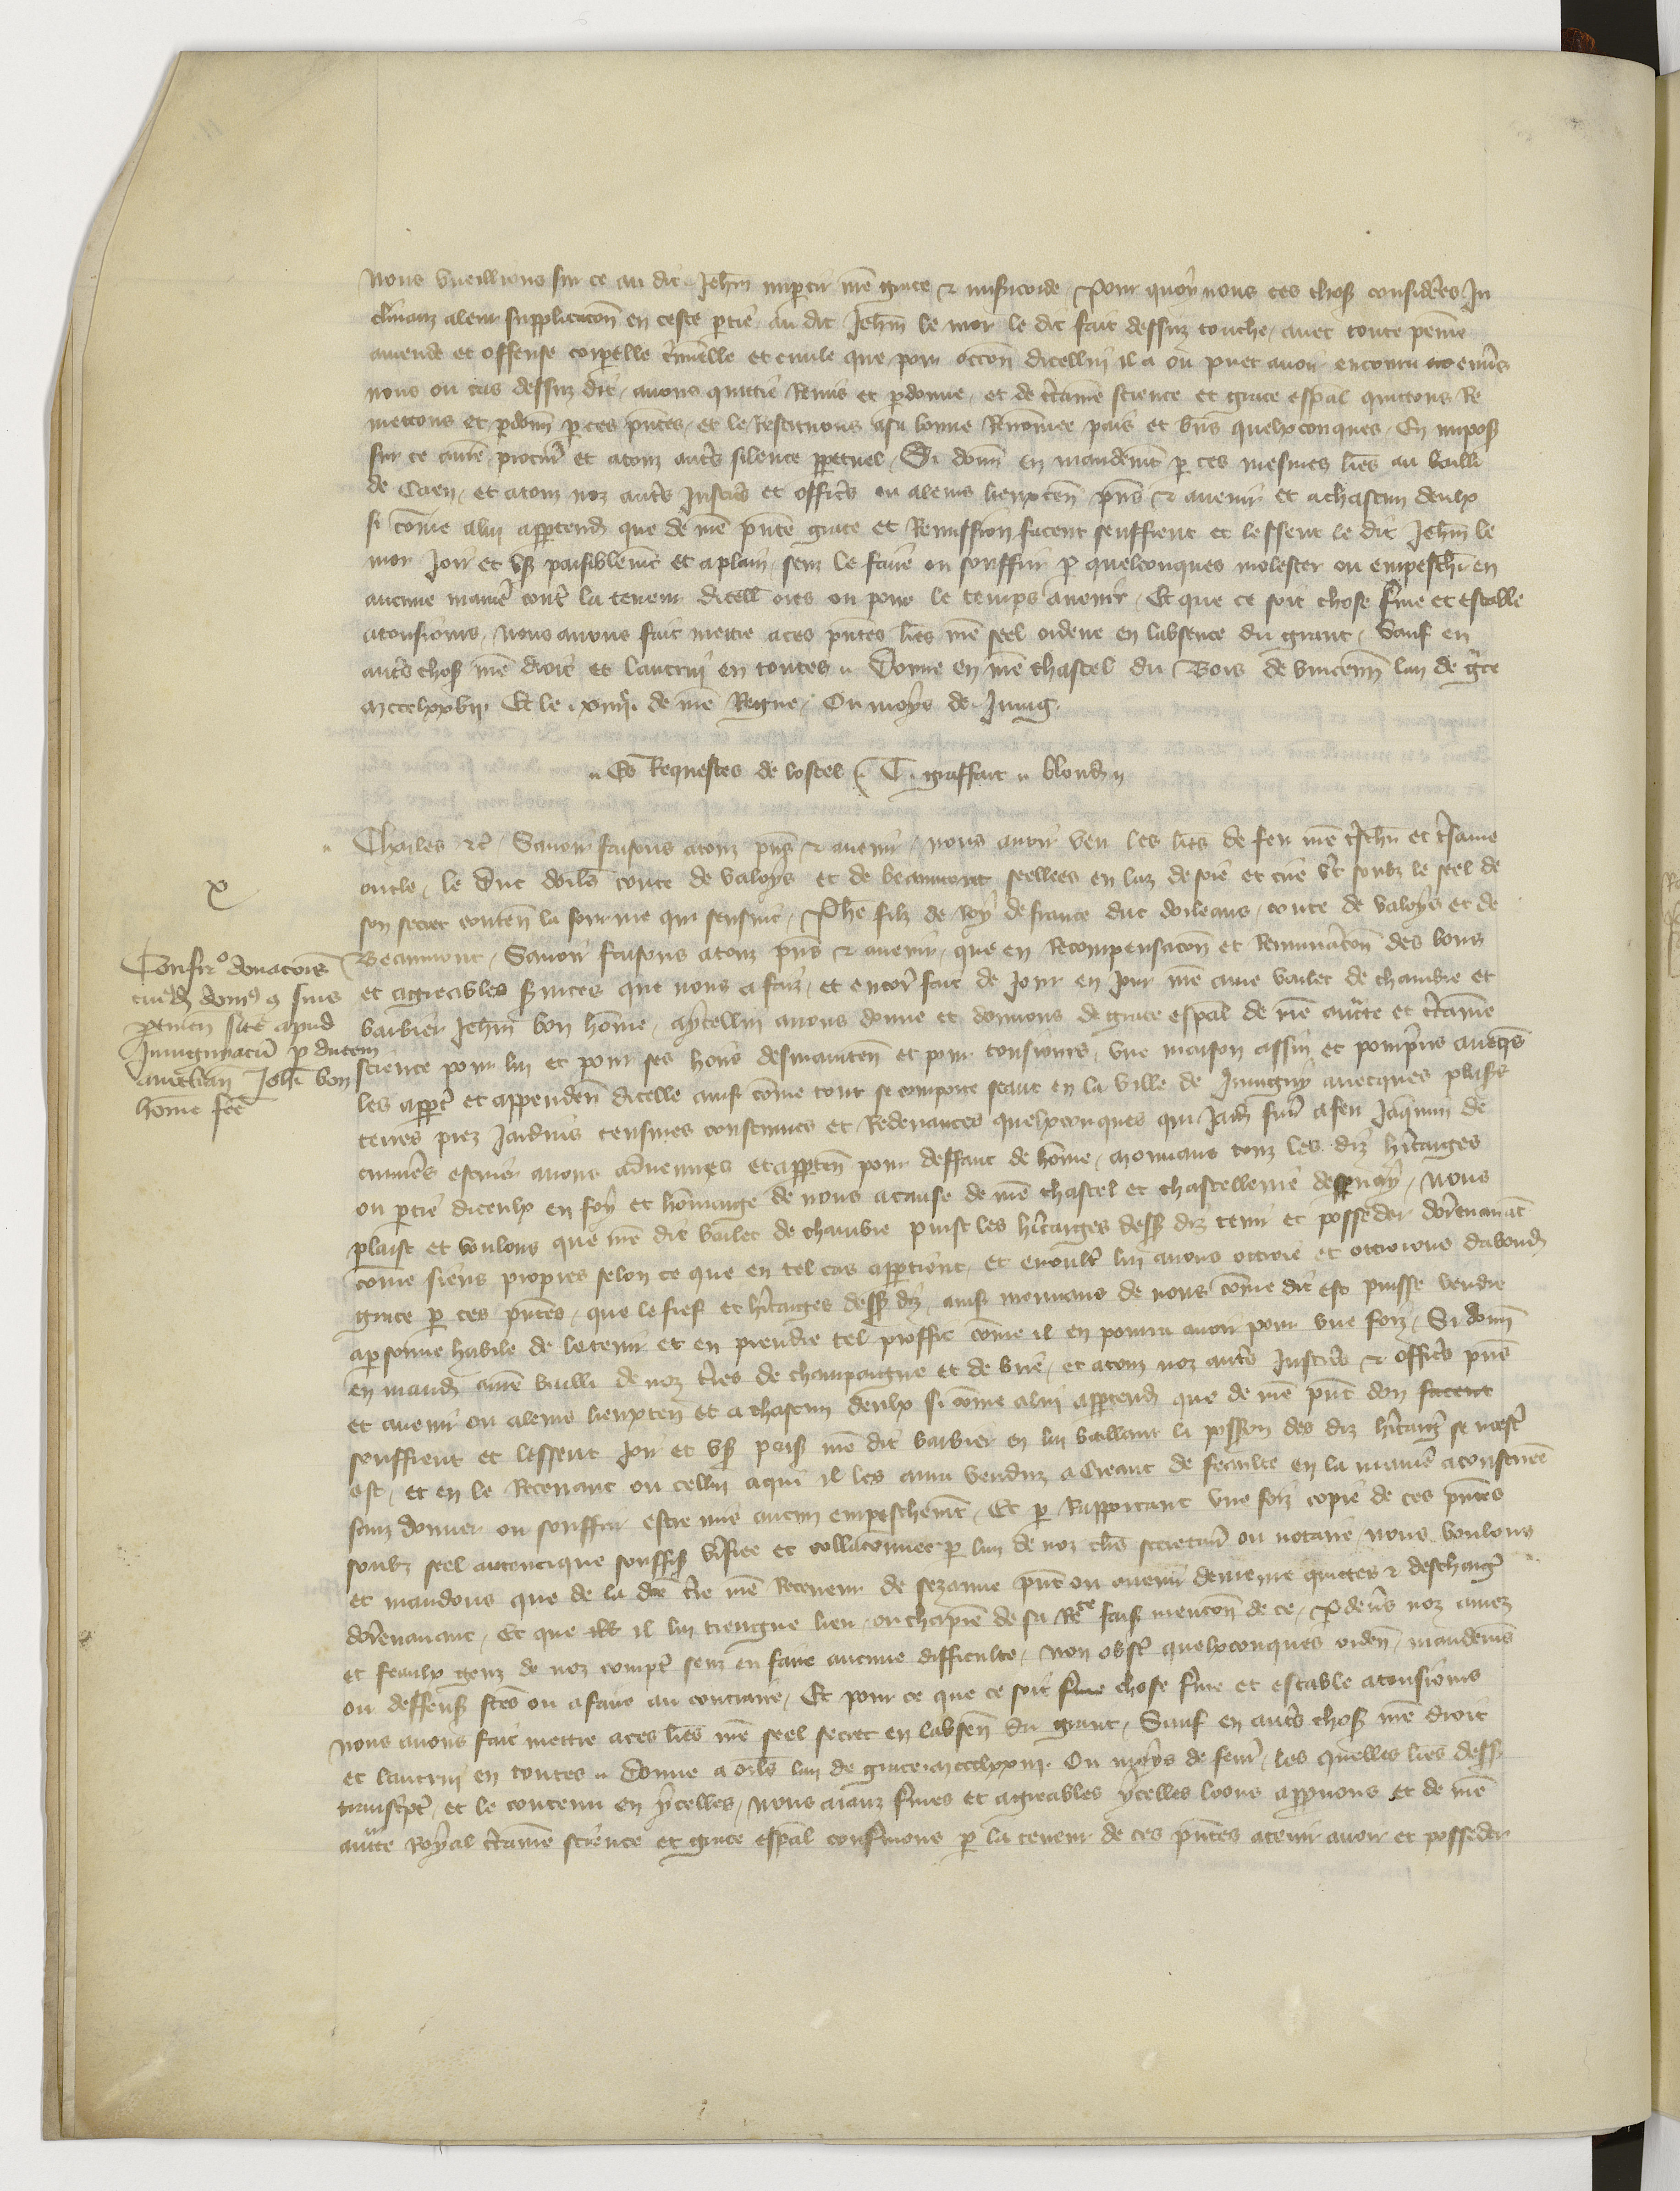 nous vueillions sur ce au dit Jehan impartir nre grace & misericorde. Pour quoy nous ces choses considerees In
clinans a leur supplicacon en ceste partie, au dit Jehan le mor le dit fait dessuz touche, avec toute peine
amende et offense corporelle criminelle et civile que pour occon dicellui il a ou puet avoir encouru envers
nous ou cas dessuz dit, avons quittie Remis et pardonne, et de certaine science et grace espal quittons Re
mettons et pardonn par ces pntes, et le Restituons a sa bonne Renommee pais et biens quelxconques, En impos
sur ce a nre procur et a touz autres silence perpetuel, Si donn en mandement par ces mesmes lres au bailli
de Caen, et a touz noz autres Justic et offic ou a leurs lieuxten pns & avenir et a chascun deulx
si comme a lui appartend que de nre pnte grace et Remission facent seuffrent et lessent le dit Jehan le
mor Joir et user paisiblement et a plain, senz le faire ou souffrir par quelconques molester ou empeschier en
aucune maniere contre la teneur dicelle ores ou pour le temps avenir, Et que ce soit chose ferme et estable
a tousiours, Nous avons fait mettre a ces pntes lres nre seel ordene en labsence du grant, Sauf en
autres choses nre droit et lautrui en toutes. Donne en nre chastel du Bois de vincenn lan de gce
mccclxxvii. Et le xiiii de nre Regne, Ou moys de Juing.
Es Requestes de lostel. T. graffart. blond
Charles &c. Savoir faisons a touz pns & avenir, nous avoir veu les lres de feu nre trescher et tresame
oncle, le duc dorls conte de valoys et de beaumont seellees en laz de soie et cire vert soubz le seel de
son secret conten la fourme qui sensuit, Phe filz de Roy de france duc dorleans, conte de valoys et de
Beaumont, Savoir faisons a touz pns & avenir, que en Recompensacon et Remuneracon des bons
et agreables services que nous a faiz, et encor fait de Jour en Jour nre ame varlet de chambre et
barbier Jehan bon homme, a ycellui avons donne et donnons de grace espal de nre aucte et certaine
science pour lui et pour ses hoirs desmainten et pour tousiours, une maison assin et pourpris avecques
les appart et appenden dicelle ainsi comme tout se comporte seant en la ville de Juvigny avecques plusrs
terres prez Jardins censives coustumes et Redevances quelxconques qui Jad furent a feu Jaquin de
escuier avons advenues et apparten pour deffaut de homme, mouvans touz les diz heritaiges
ou partie diceulx en foy et hommaige de nous a cause de nre chastel et chastellerie despernay, Nous
plaist et voulons que nre dit varlet de chambre puist les heritaiges dess diz tenir et posseder dorenavant
comme siens propres selon ce que en tel cas appartient, et en oultre lui avons ottroie et ottroions dabond
grace par ces pntes, que le fief et heritaiges dess diz, ainsi mouvans de nous comme dit est puisse vendre
a personne habile de le tenir et en prendre tel proffit comme il en pourra avoir pour une foiz, Si donn
en mand a nre bailli de noz terres de champaigne et de brie, et a touz noz autres Justic & offic pns
et avenir ou a leurs lieuxten et a chascun deulx si comme a lui appartend que de nre pnt don facent
seuffrent et lessent Joir et user paisi nre dit barbier en lui baillant la possession des diz heritaig se mest
est, et en le Recevant ou cellui a qui il les aura venduz a creant de feaulte en la maniere acoustumee
sanz donner ou souffrir estre mis aucun empeschement, Et par Rapportant une foiz copie de ces pntes
soubz seel autentique souffis verifiee et collacionnee par lun de noz clers secretair ou notaire, nous voulons
et mandons que de la dte terre nre Receveur de sezanne pnt ou avenir demeure quictes & deschaig
dorenavant, Et que il lui tiengne lieu, ou chapitre de sa Recte fais mencon de ce, par devers noz amez
et feaulx genz de noz compt senz en faire aucune difficulte, Non obst quelxconques orden, mandemens
ou deffens ftes ou a faire au contraire, Et pour ce que ce soit ferme chose ferme et estable a tousiours
Nous avons fait mettre a ces lres nre seel secret en labsen du grant, Sauf en autres choses nre droit
et lautrui en toutes. Donne a orls lan de grace mccclxxiii. Ou moys de fevrier, les quelles lres dess
transcrpt, et le contenu en ycelles, Nous aianz fermes et agreables ycelles loons approuvons et de nre
aucte Royal certaine science et grace espal confirmons par la teneur de ces pntes a tenir avoir et posseder
x
Confirmo donacois
cuiusd domus cum suis
pertinen site apud
Juvigniacum per ducem
aurelian Johi bon
homme fce